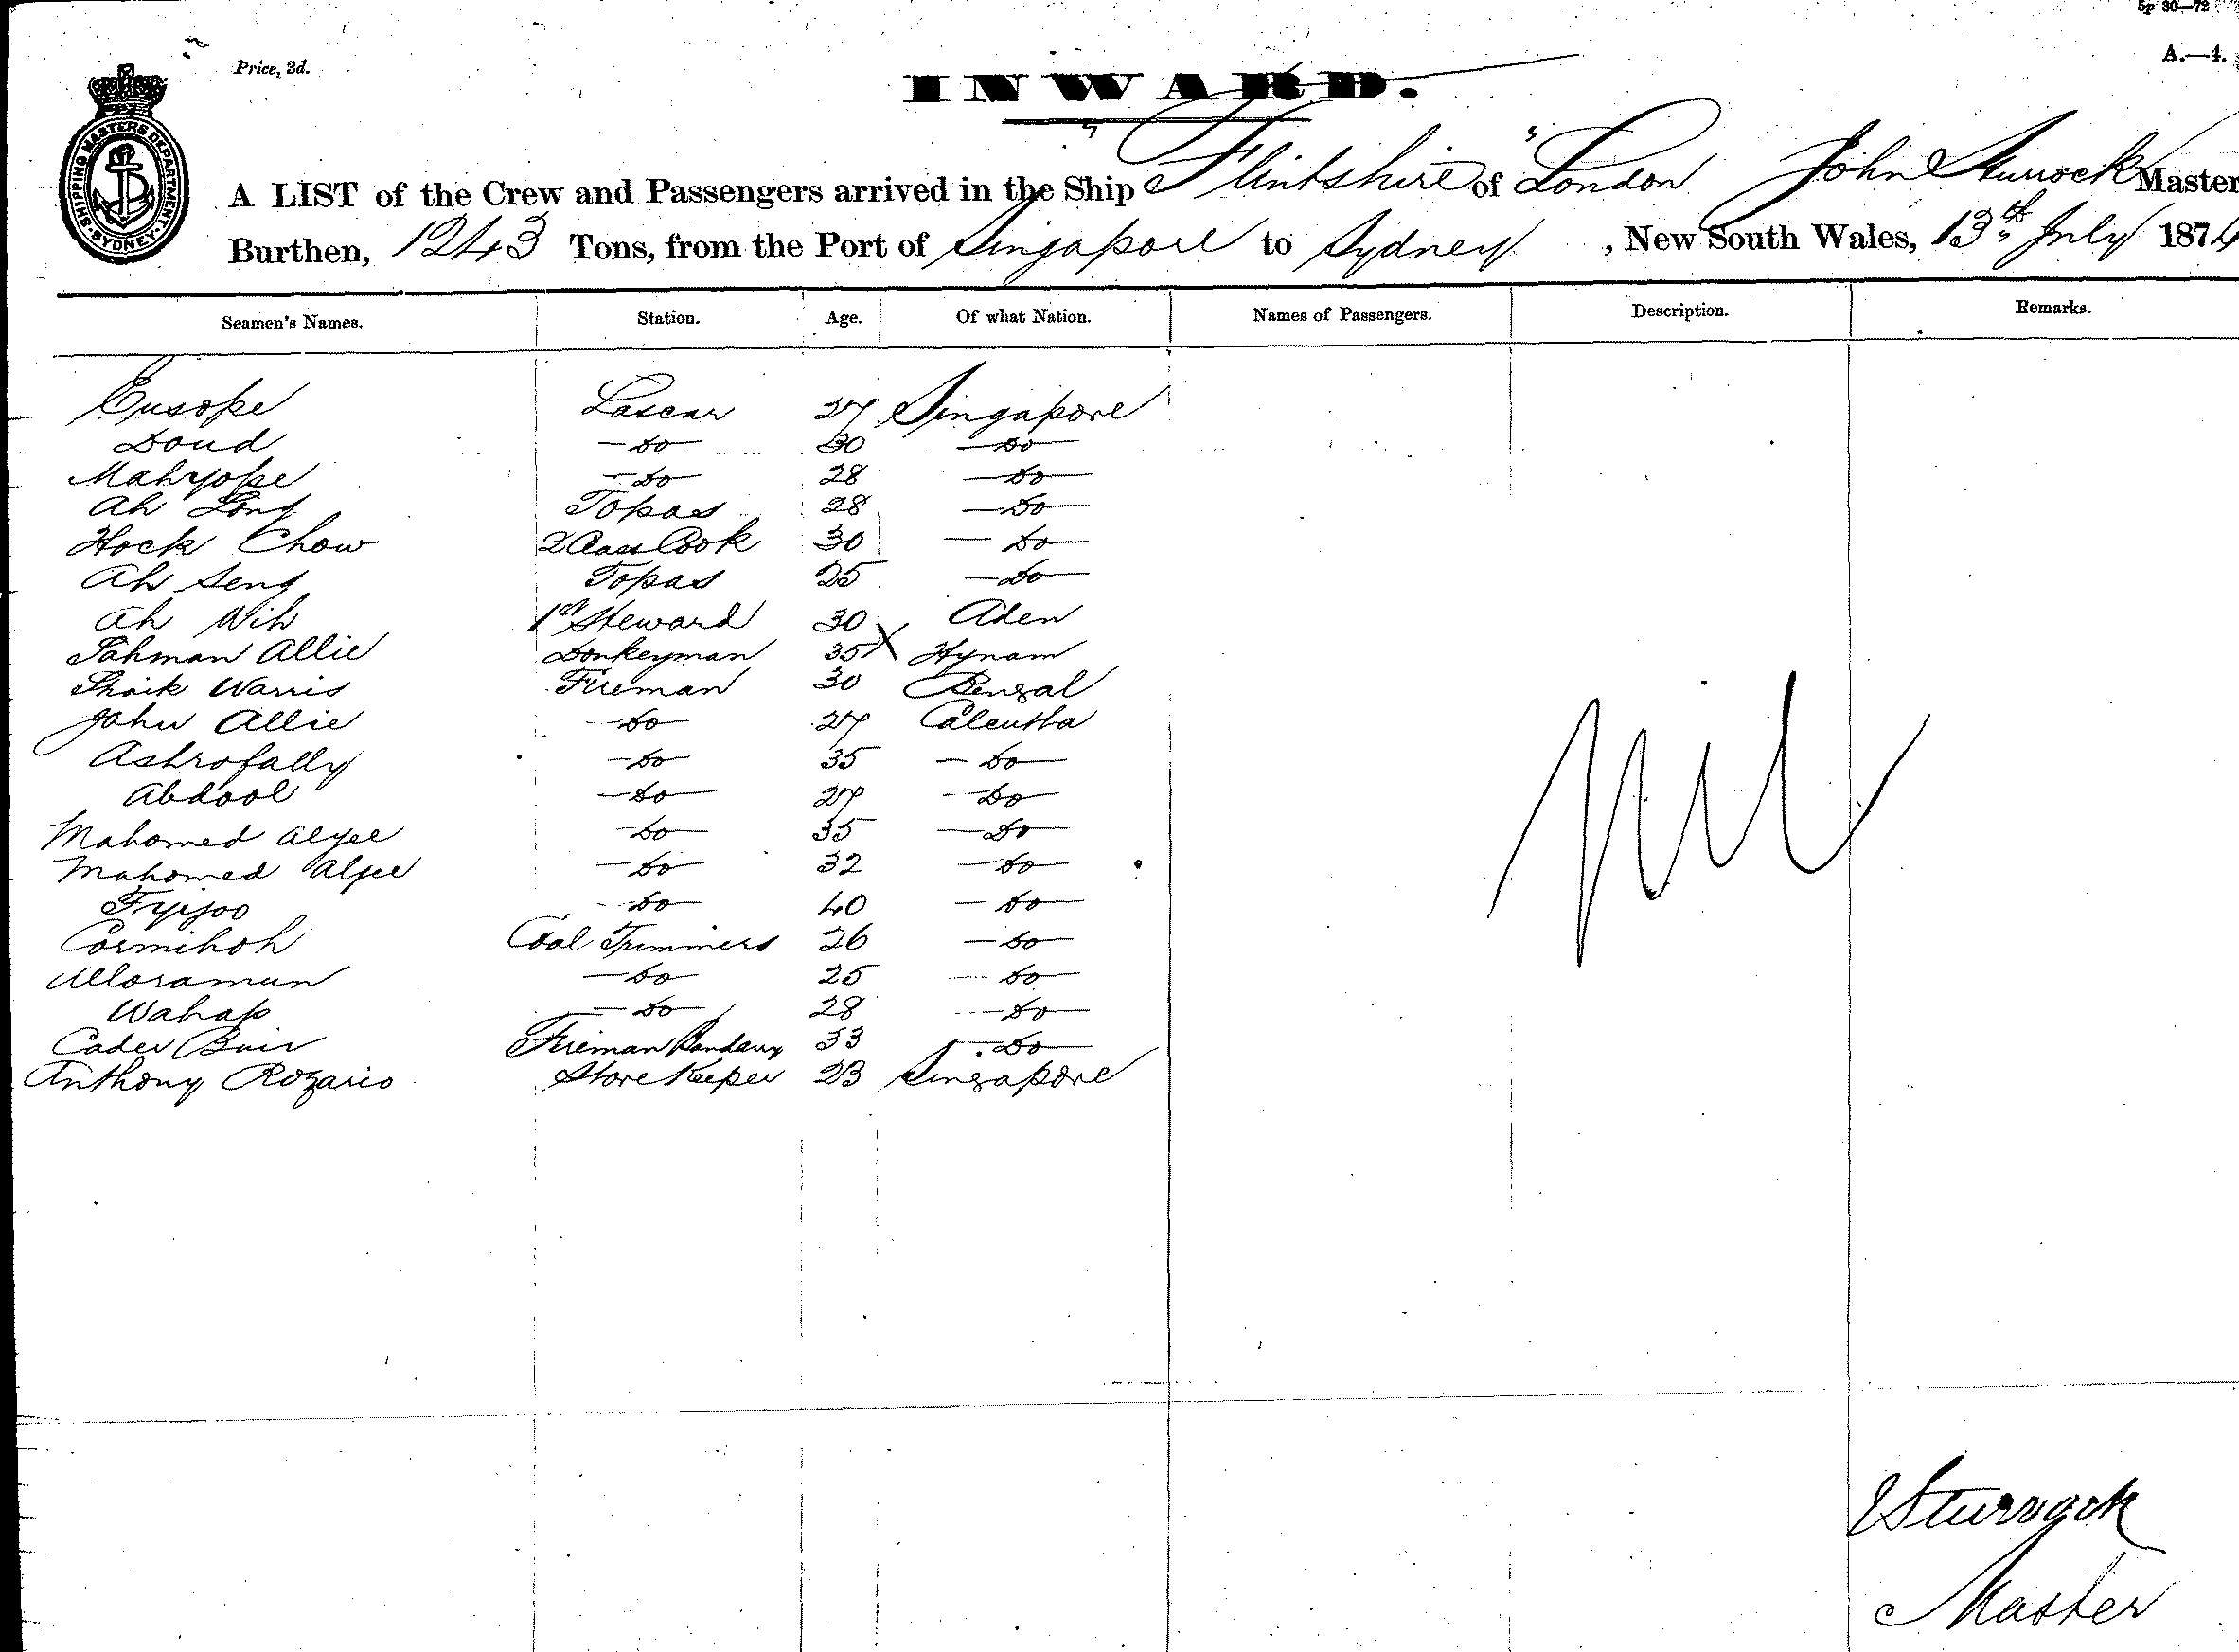 5p 30—72
A.—4.
Price, 3d.
INWARD.
SHIPPING MASTERS DEPARTMENT SYDNEY
A LIST of the Crew and Passengers arrived in the Ship "Flintshire" of London John Sturrock Master
Burthen, 1243 Tons, from the Port of Singapore to Sydney, New South Wales, 13th July 1874
Seamen's Names. Station. Age. Of what Nation. Names of Passengers. Description. Remarks.
Eusope Lascar 27 Singapore
Doud —do— 30 —do—
Mahryope —do— 28 —do—
Ah Long Topas 28 —do—
Hock Chow 2 Class Cook 30 —do—
Ah Seng Topas 25 —do—
Ah Nih 1st Steward 30 Aden
Sahman Allie Donkeyman 35 X Hynam
Shaik Warris Fireman 30 Bengal
John Allie —do— 27 Calcutta
Ashrofally —do— 35 —do—
Abdool —do— 27 —do—
Mahomed Alyee —do— 35 —do—
Mahomed Alyee —do— 32 —do—
—do— 40 —do—
Cormihoh Coal Trimmers 26 —do—
Alloramun —do— 25 —do—
Wahap —do— 28 —do—
Cader Fireman 33 —do—
Anthony Rozario Store Keeper 23 Singapore
Nil
JSturrock
Master